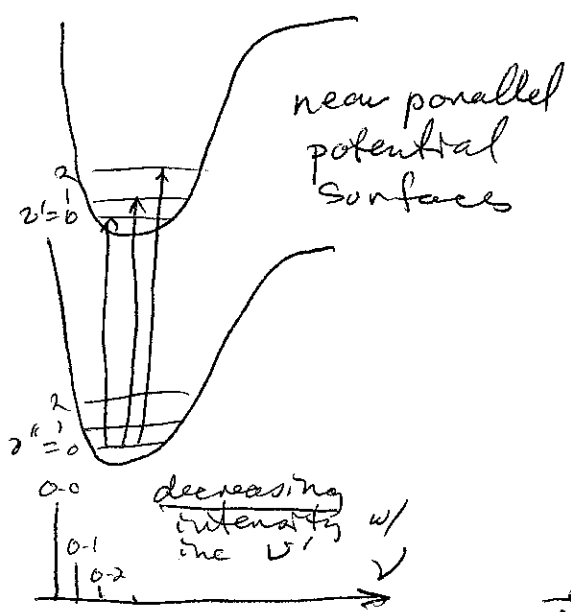 near parallel
potential
surfaces
2
1
v' = 0
2
1
v'' = 0
0-0
0-1
0-2
decreasing
intensity w/
inc v'
ν